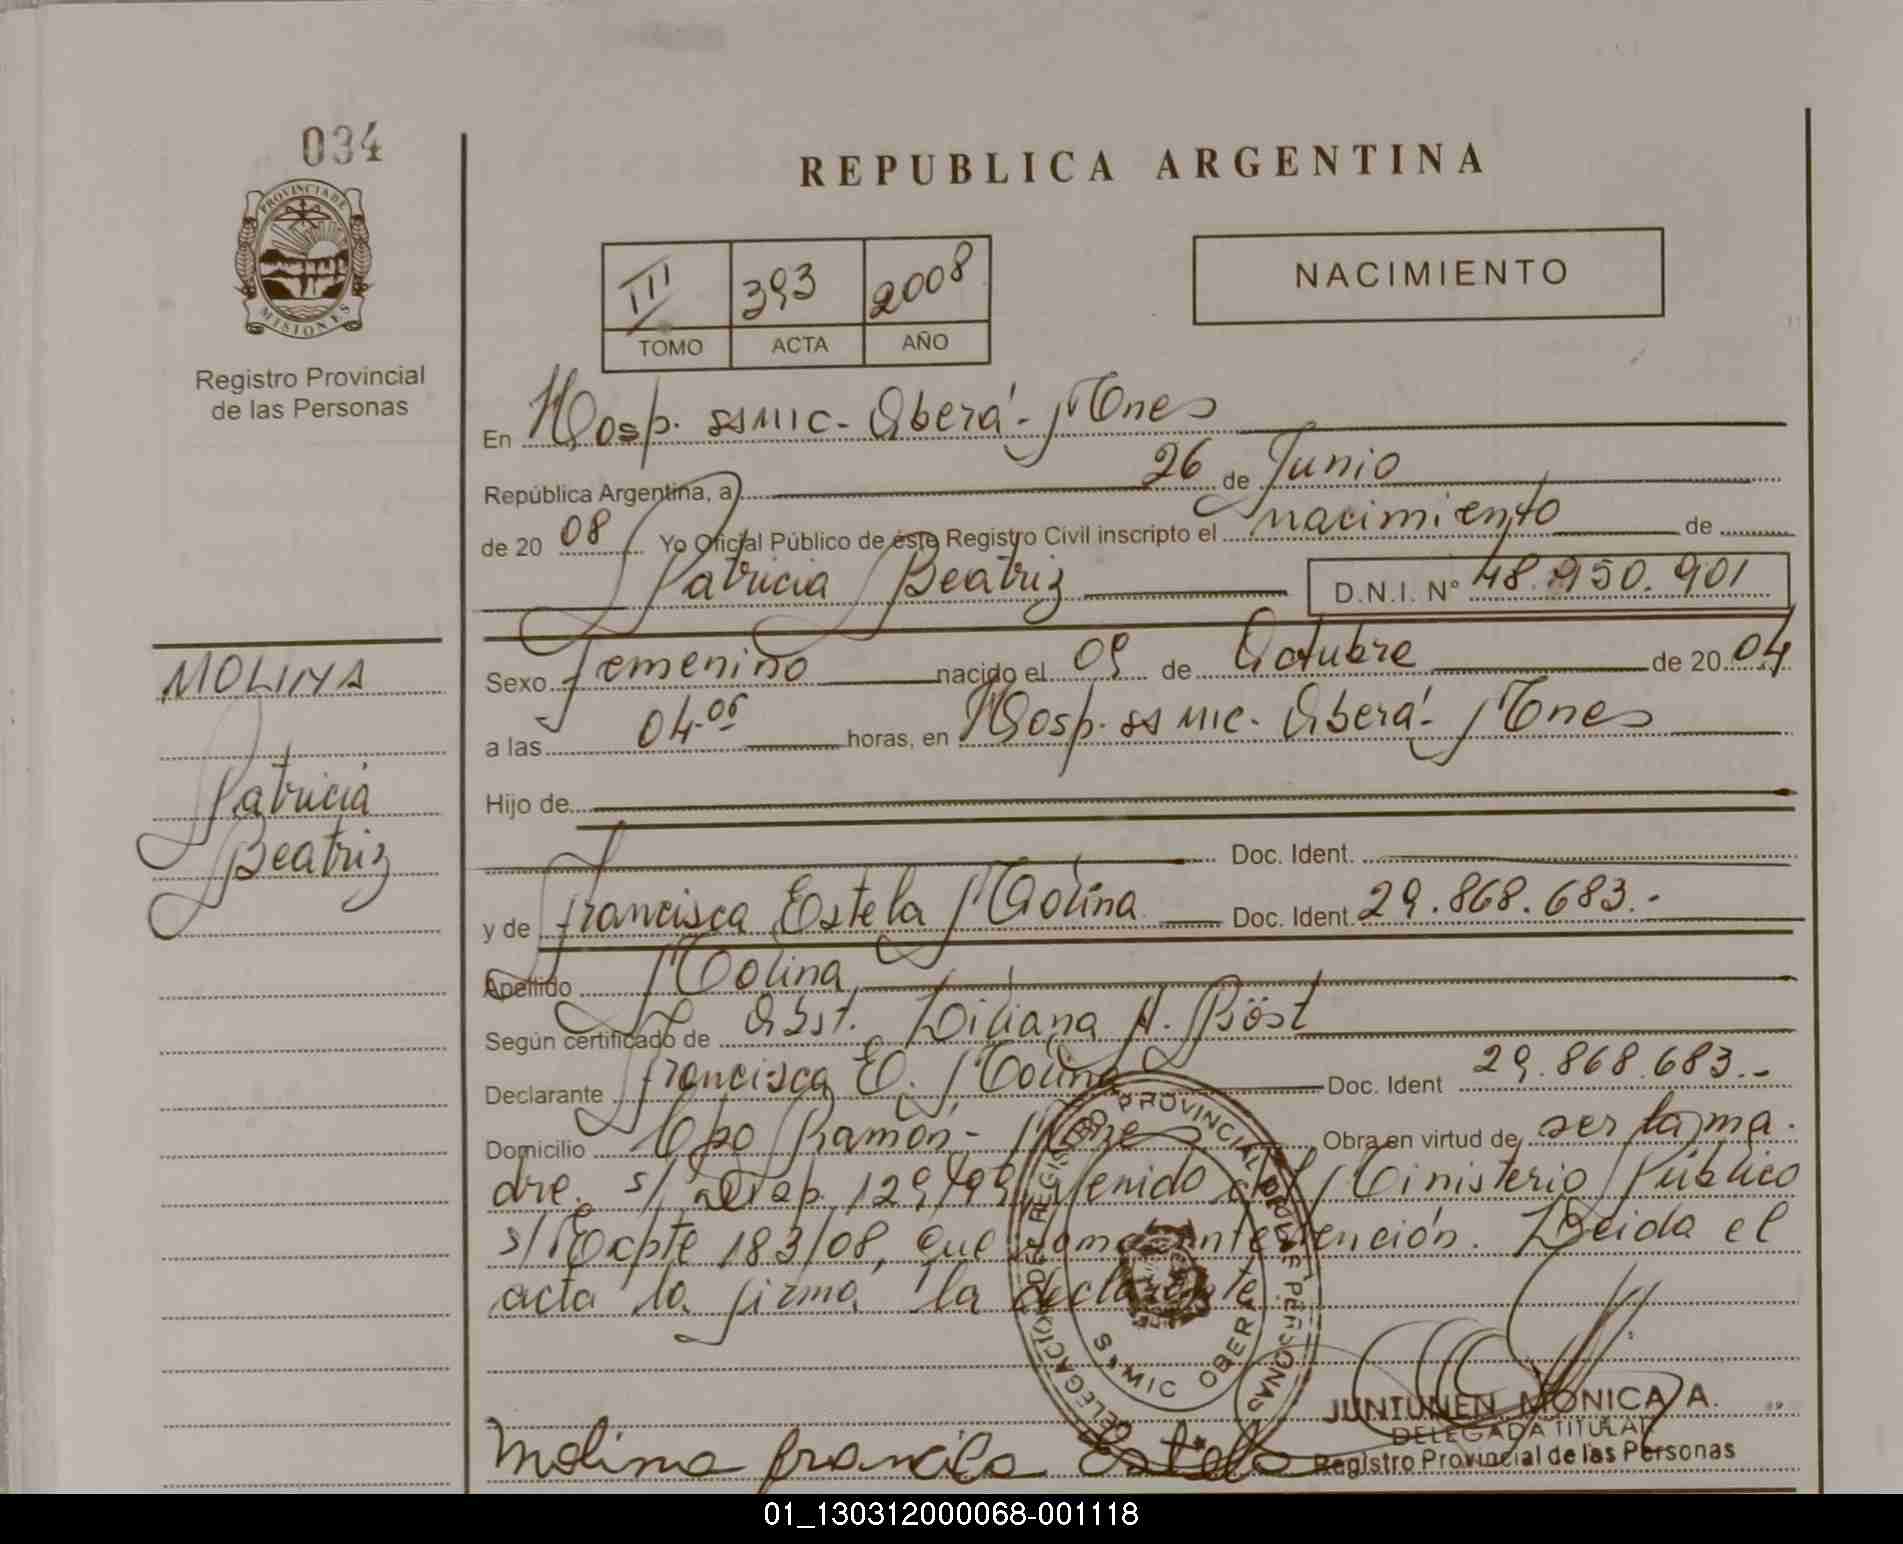 034
PROVINCIA DE
MISIONES
Registro Provincial
de las Personas
REPUBLICA ARGENTINA
III 393 2008
TOMO ACTA AÑO
NACIMIENTO
En Hosp. SSMIC - Oberá - Mnes
República Argentina, a 26 de Junio
de 20 08 Yo Oficial Público de éste Registro Civil inscripto el nacimiento de
Patricia Beatriz D.N.I. Nº 48.950.901
Sexo femenino nacido el 09 de Octubre de 20 04
a las 04.05 horas, en Hosp. SSMIC - Oberá - Mnes
Hijo de
Doc. Ident.
y de Francisca Estela Molina Doc. Ident. 29.868.683.-
Apellido Molina
Según certificado de Obst. Liliana A. Böst
Declarante Francisca E. Molina Doc. Ident 29.868.683.-
Domicilio Cpo Ramón - Obra en virtud de ser la ma-
dre. s/ Disp. 129/99 venido del Ministerio Público
s/ Expte 183/08, que toma intervención. Leida el
acta la firma la declarante
MOLINA
Patricia
Beatriz
DELEGACION DE REGISTRO PROVINCIAL DE LAS PERSONAS
OBERA
Molina francisca Estela
JUNTUNEN MONICA A.
DELEGADA TITULAR
Registro Provincial de las Personas
01_130312000068-001118